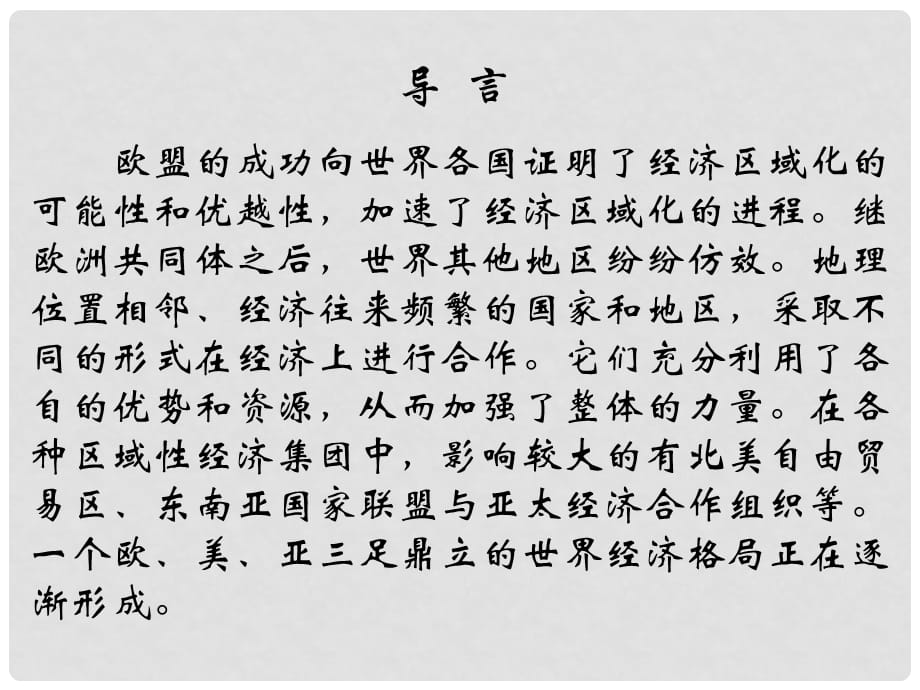 导 言
欧盟的成功向世界各国证明了经济区域化的
可能性和优越性，加速了经济区域化的进程。继
欧洲共同体之后，世界其他地区纷纷仿效。地理
位置相邻、经济往来频繁的国家和地区，采取不
同的形式在经济上进行合作。它们充分利用了各
自的优势和资源，从而加强了整体的力量。在各
种区域性经济集团中，影响较大的有北美自由贸
易区、东南亚国家联盟与亚太经济合作组织等。
一个欧、美、亚三足鼎立的世界经济格局正在逐
渐形成。